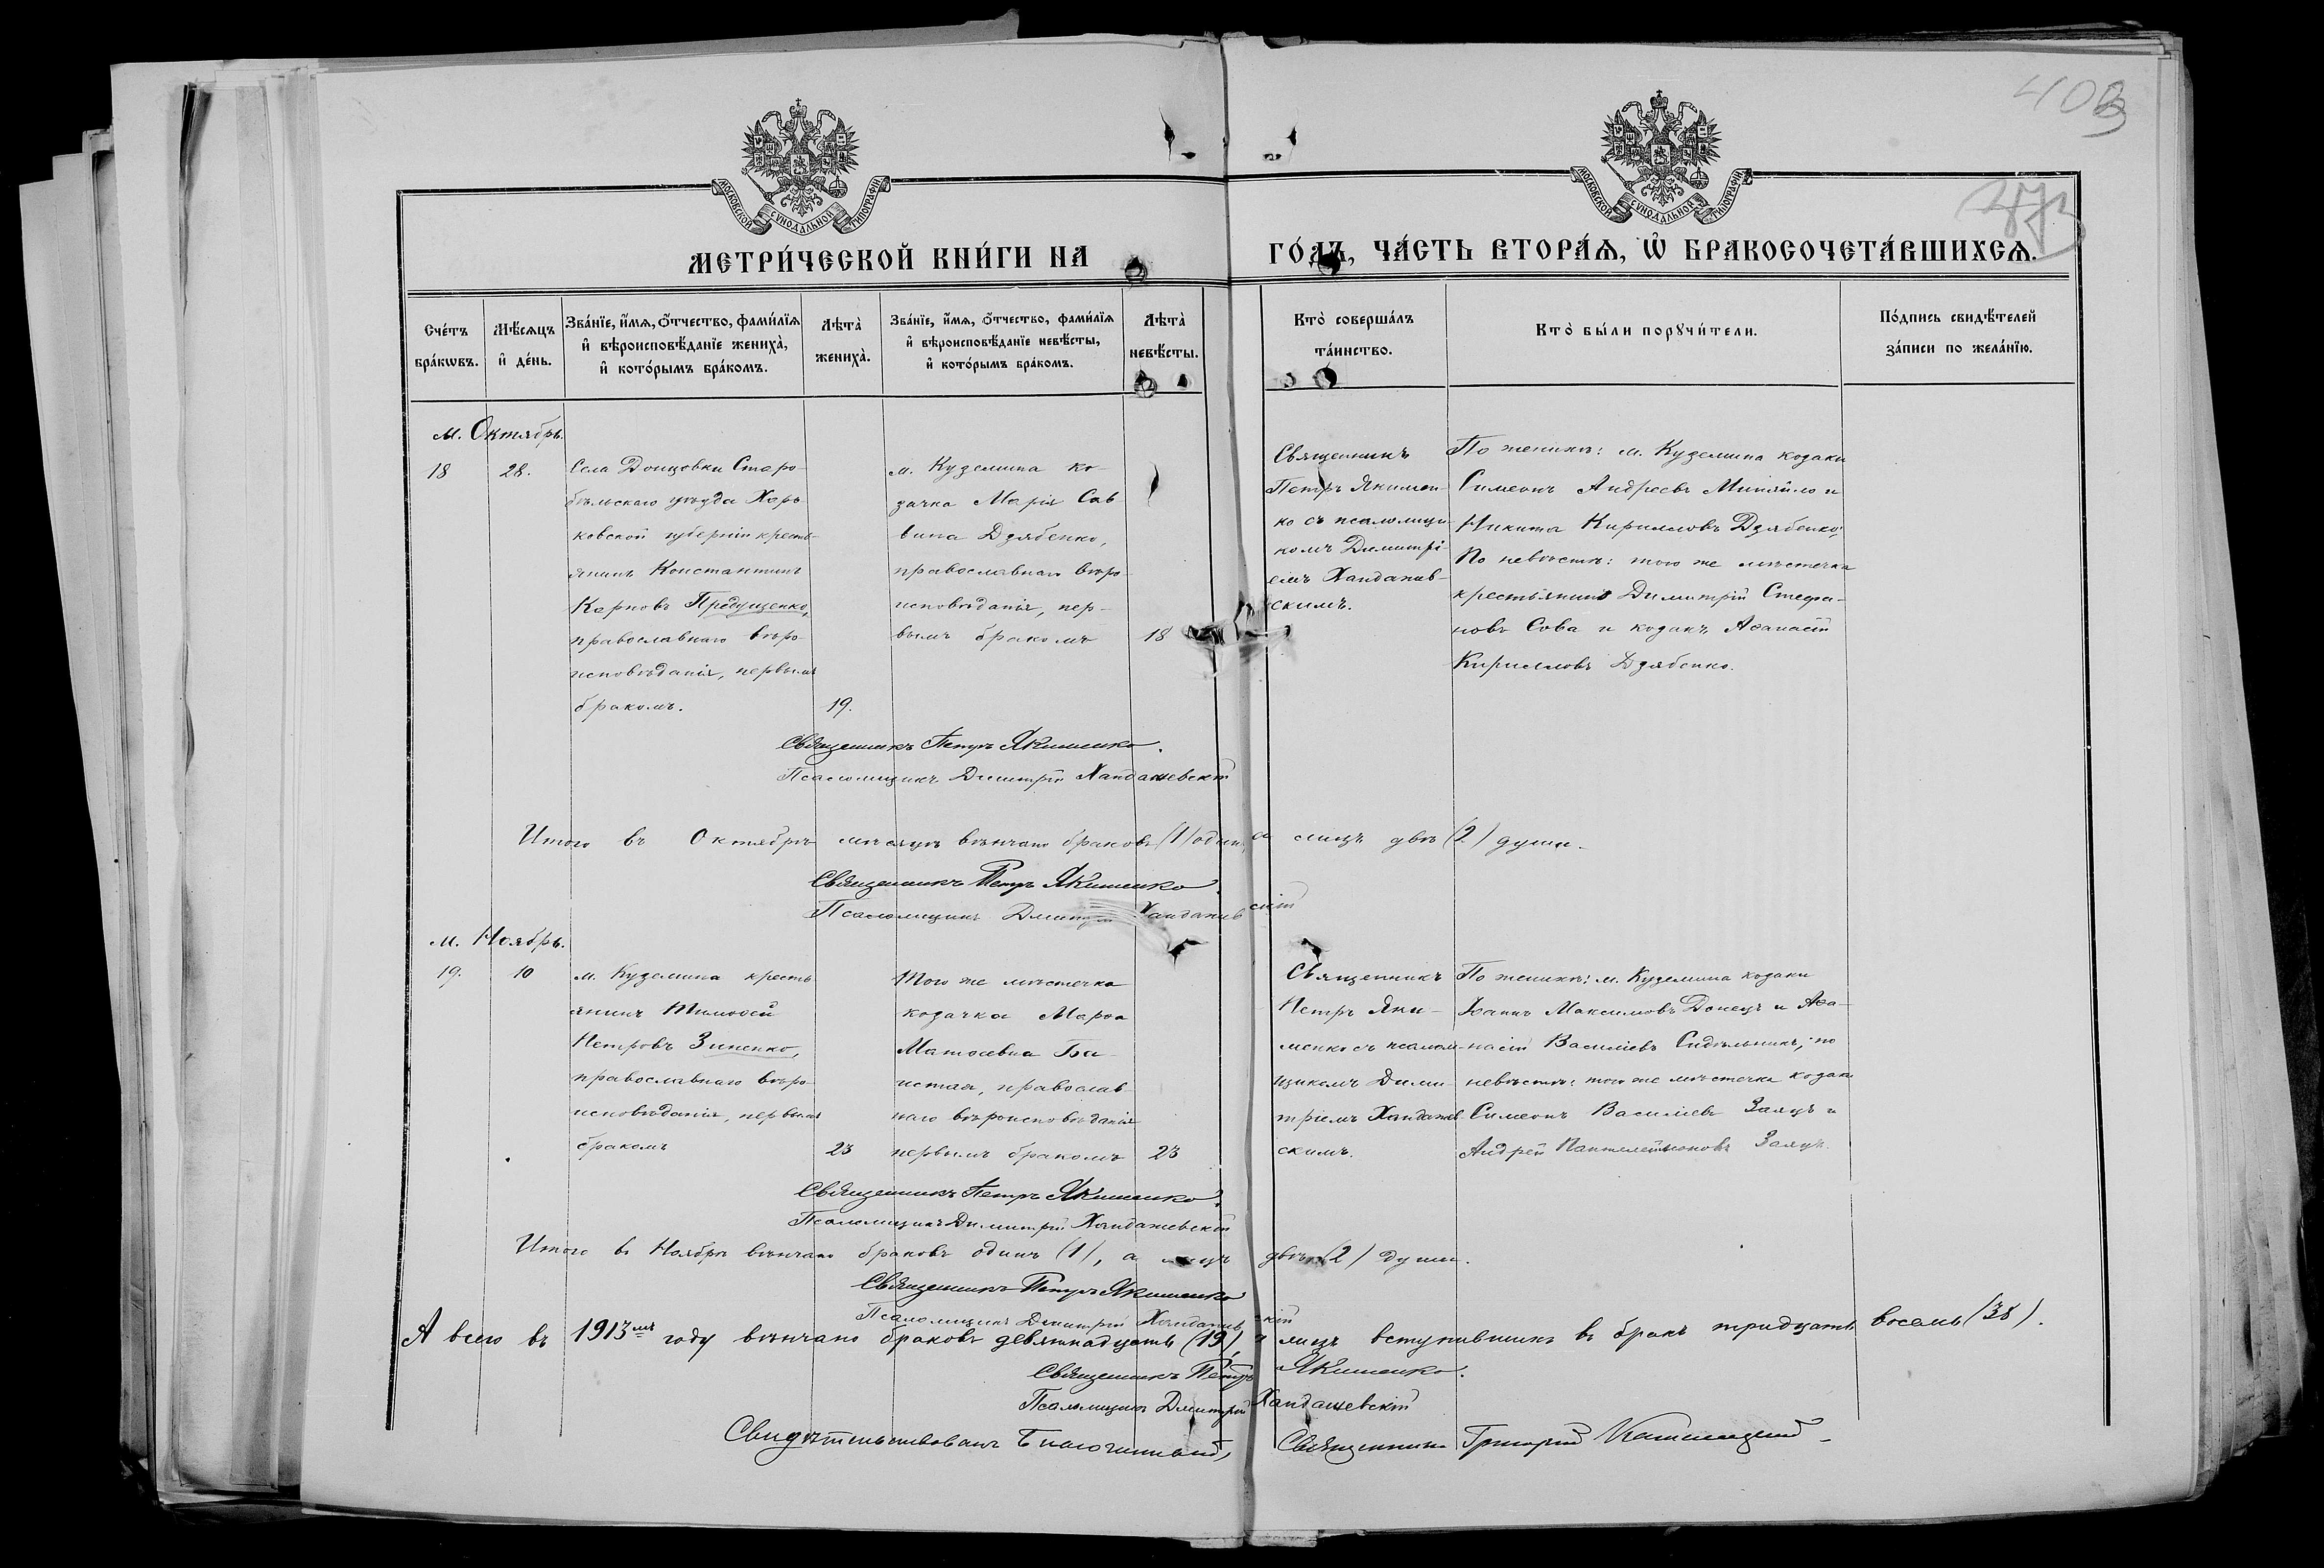 403
МОСКОВСКОЙ СѴНОДАЛЬНОЙ ТИПОГРАФІИ
МОСКОВСКОЙ СѴНОДАЛЬНОЙ ТИПОГРАФІИ
МЕТРИ́ЧЕСКОЙ КНИ́ГИ НА ГО́ДЪ, ЧА́СТЬ ВТОРА́Ѧ, Ѽ БРАКОСОЧЕТА́ВШИХСѦ.
Сче́тъ бра́кѡвъ.
Мѣ́сѧцъ и҆ де́нь.
Зва́нїе, и҆́мѧ, ѻ҆́тчество, фами́лїѧ и҆ вѣроисповѣ́данїе жениха̀, и҆ кото́рымъ бра́комъ.
Лѣта̀ жениха̀.
Зва́нїе, и҆́мѧ, ѻ҆́тчество, фами́лїѧ и҆ вѣроисповѣ́данїе невѣ́сты, и҆ кото́рымъ бра́комъ.
Лѣта̀ невѣ́сты.
Кто̀ соверша́лъ та́инство.
Кто̀ бы́ли порꙋчи́тели.
По́дпись свидѣ́телей за́писи по жела́нїю.
м. Октябрь.
18
28.
Села Донцовки Старо-
бѣльскаго уѣзда Харь-
ковской губерніи кресть-
янинъ Константинъ
Карповъ Предущенко,
православнаго вѣро-
исповѣданія, первымъ
бракомъ.
19.
м. Куземина ко-
зачка Марія Сав-
вина Дзябенко,
православнаго вѣро-
исповѣданія, пер-
вымъ бракомъ
18
Священникъ
Петръ Якимен-
ко съ псаломщи-
комъ Димитрі-
емъ Хандажев-
скимъ.
По женихѣ: м. Куземина козаки
Симеонъ Андреевъ и
Никита Кирилловъ Дзябенко;
По невѣстѣ: того же мѣстечка
крестьянинъ Димитрій Стефа-
новъ Сова и козакъ Аѳанасій
Кирилловъ Дзябенко.
Священникъ Петръ Якименко.
Псаломщикъ Димитрій Хандажевскій
Итого въ Октябрѣ мѣсяцѣ вѣнчано браковъ (1) одинъ, а лицъ двѣ (2) души.
Священникъ Петръ Якименко.
Псаломщикъ Димитрій Хандажевскій
м. Ноябрь.
19.
10
м. Куземина кресть
янинъ Тимоѳей
Петровъ Зиненко,
православнаго вѣро-
исповѣданія, первымъ
бракомъ
23
того же мѣстечка
козачка Марѳа
Матѳіевна Ба-
истая, православ-
наго вѣроисповѣданія
первымъ бракомъ
23
Священникъ
Петръ Яки-
менко съ псалом-
щикомъ Дими-
тріемъ Хандажев-
скимъ.
По женихѣ: м. Куземина козаки
Іоаннъ Максимовъ Донецъ и Аѳа-
насій Василіевъ Сидѣльникъ; по
невѣстѣ: того же мѣстечка козаки
Симеонъ Василіевъ Заяцъ и
Андрей Пантелеймоновъ Заяцъ.
Священникъ Петръ Якименко.
Псаломщикъ Димитрій Хандажевскій
Итого въ Ноябрѣ вѣнчано браковъ одинъ (1), а лицъ двѣ (2) души.
Священникъ Петръ Якименко
Псаломщикъ Димитрій Хандажевскій
А всего въ 1913мъ году вѣнчано браковъ девятнадцать (19), а лицъ вступившихъ въ бракъ тридцать восемь (38).
Священникъ Петръ Якименко.
Псаломщикъ Димитрій Хандажевскій
Свидѣтельствовалъ Благочинный, Священникъ Григорій